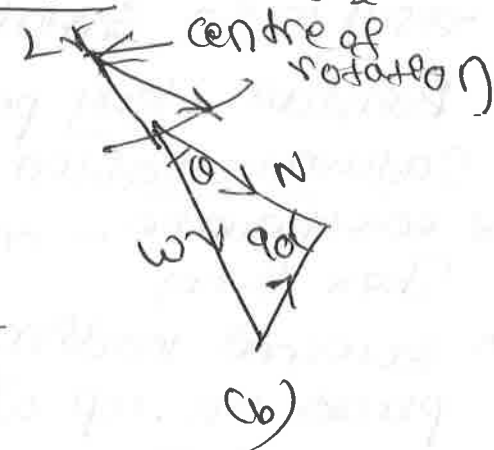 L
centre of
rotation
θ
N
W
90
(b)